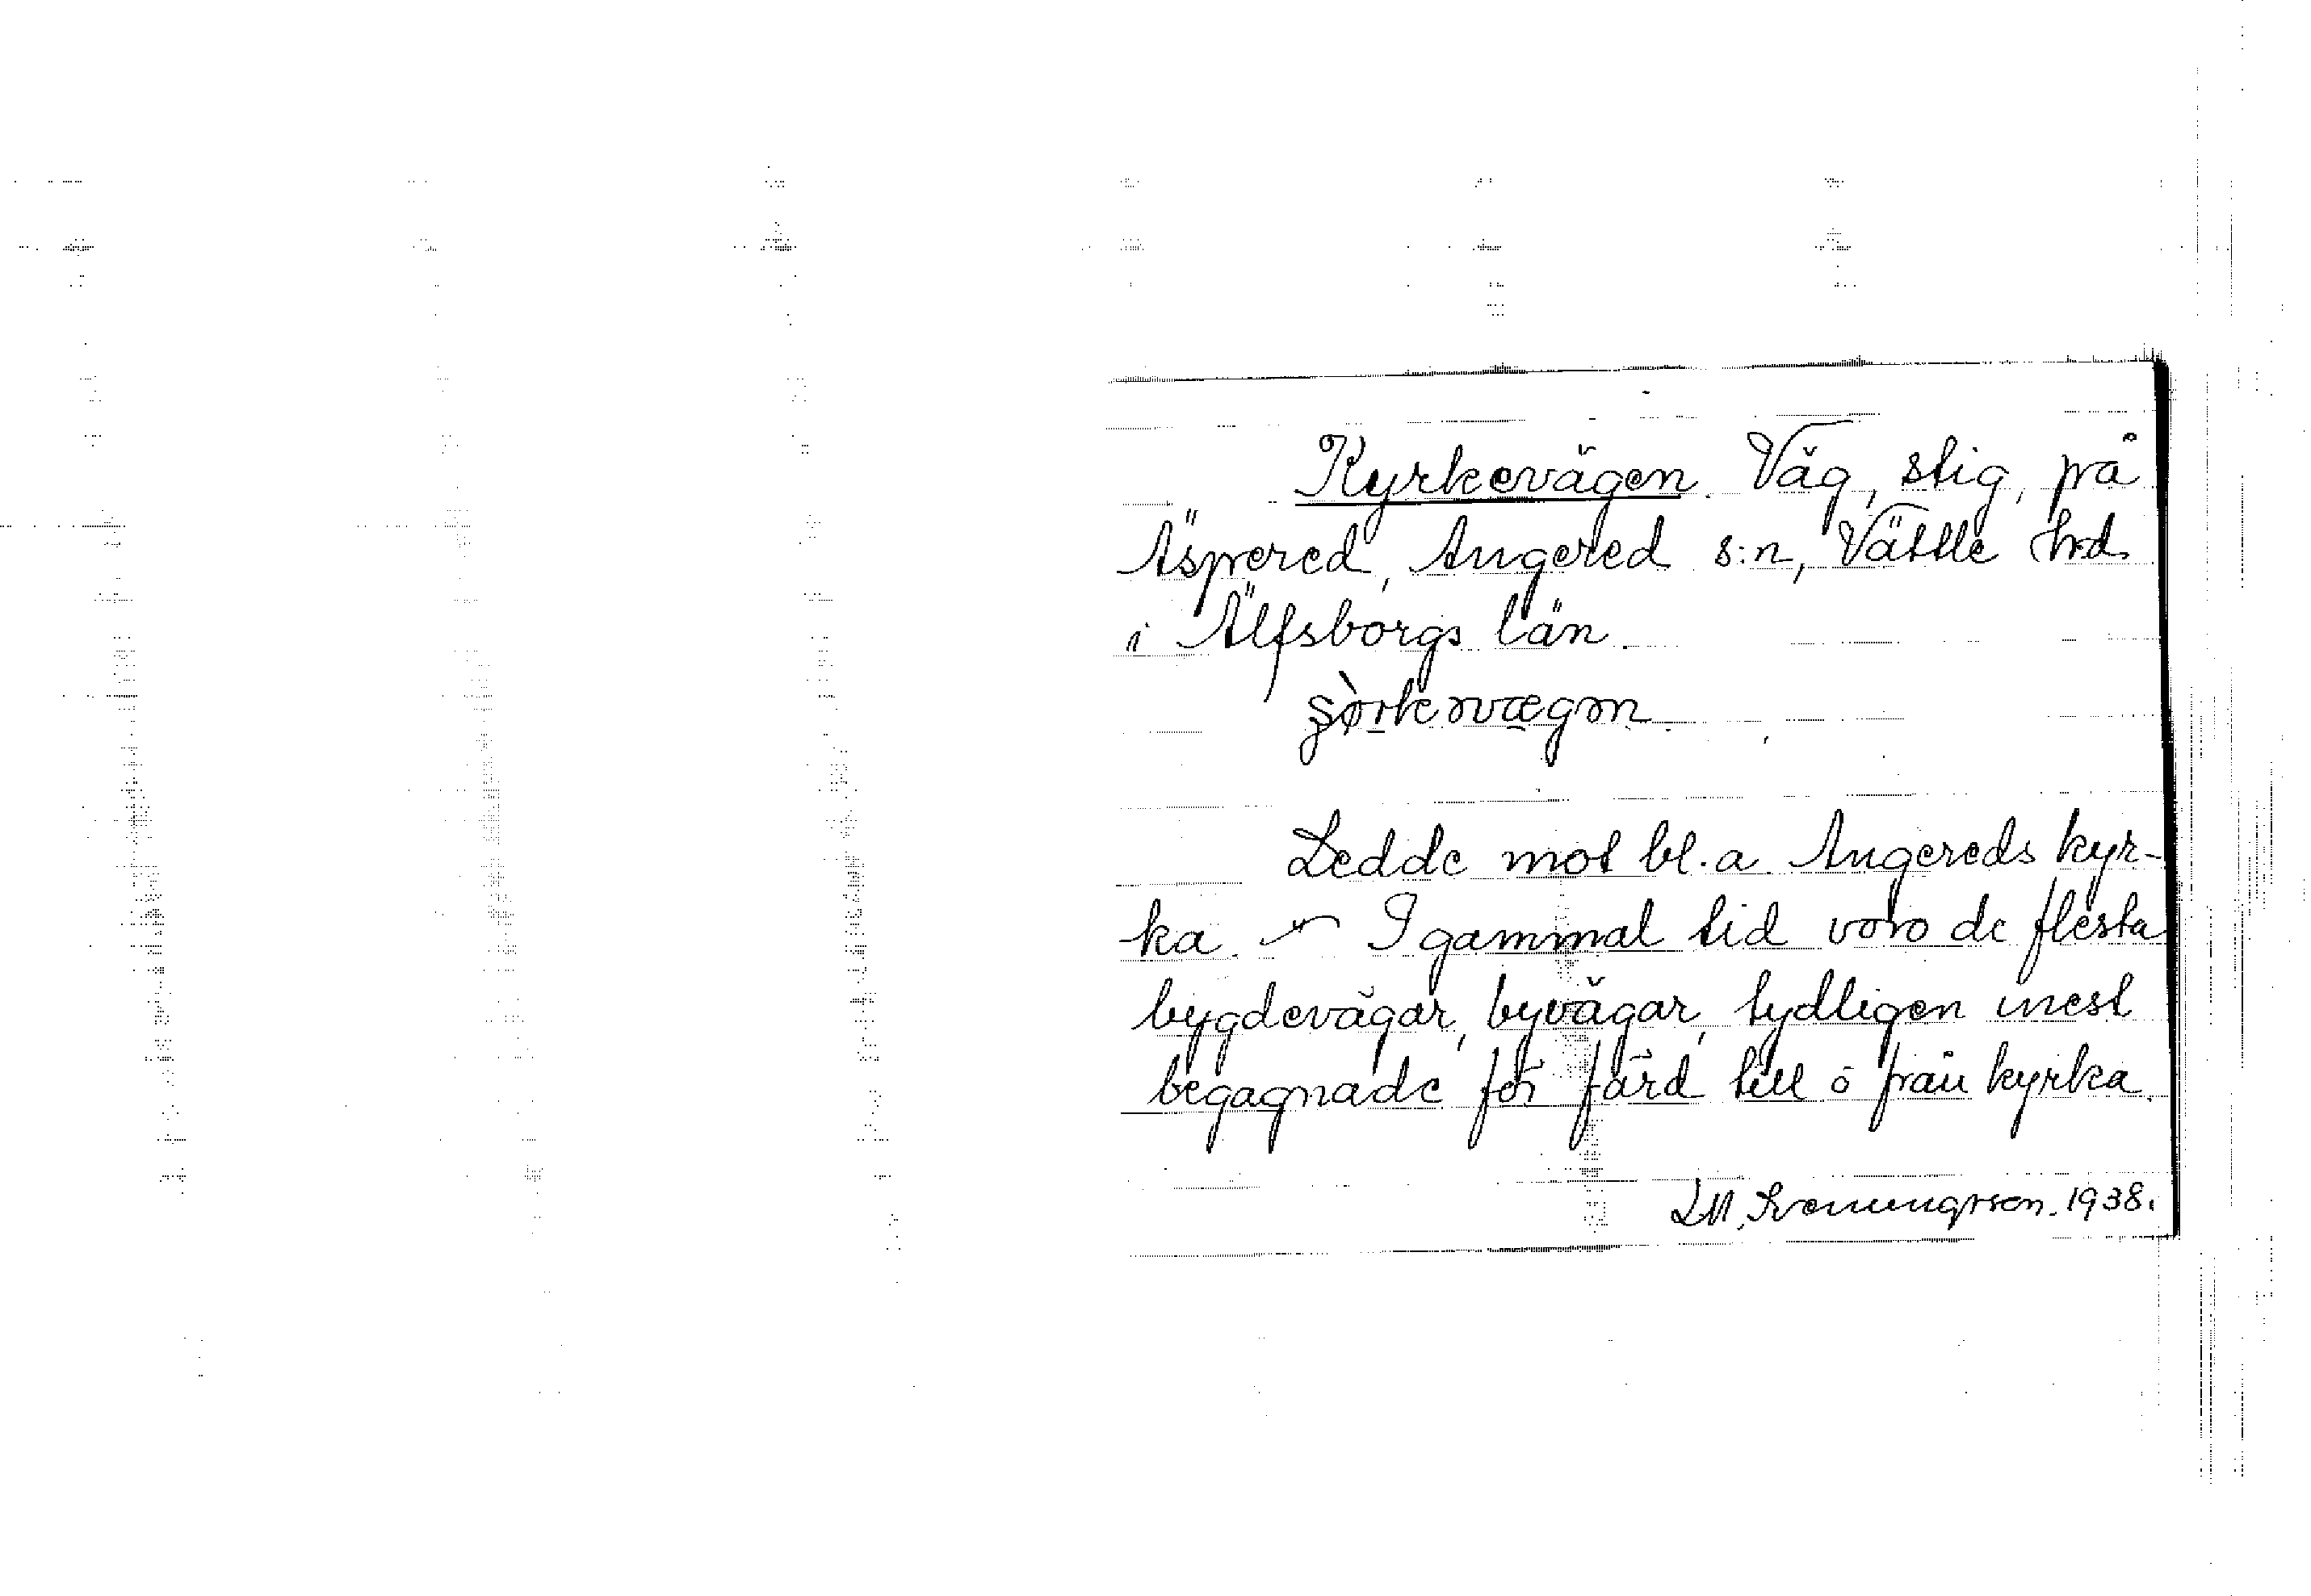 Kyrkevägen. Väg, stig, på
Äspered, Angered s:n, Vättle hd.
i Älfsborgs län.
Ledde mot bl.a. Angereds kyr-
ka. — I gammal tid voro de flesta
bygdevägar, byvägar, tydligen mest
begagnade för färd till o från kyrka.
1938.